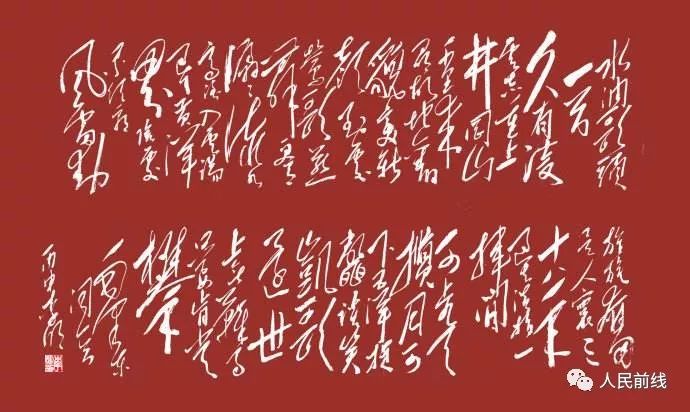 水调歌頭
一首
久有凌
云志重上
井冈山
千里来
寻故地旧
貌变新
颜到处
莺歌燕
舞更有
潺潺流水
高路入云端
过了黄洋
界险处
不须看
风雷动
旌旗奋
是人寰三
十八年
过去弹指一
挥间
可上九天
揽月可
下五洋捉
鳖谈笑
凯歌
还世
上无难事
只要肯登
攀
毛泽东
同志
人民前线